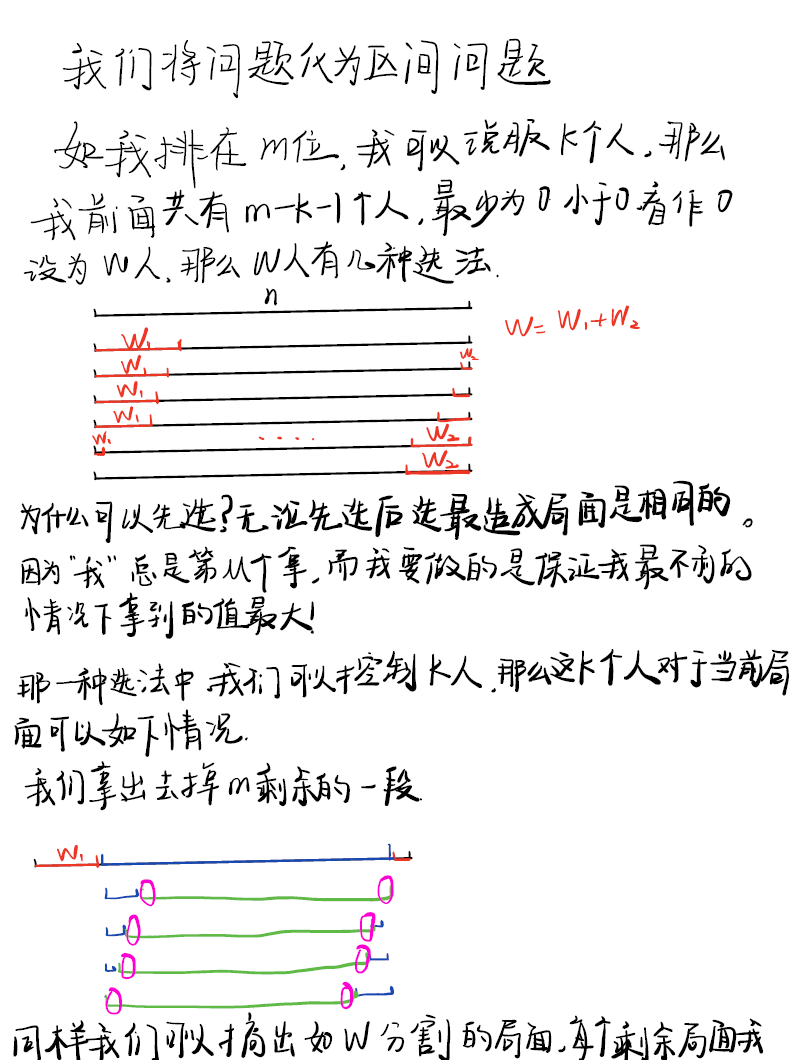 我们将问题化为区间问题
如我排在m位,我可以说服k个人,那么
我前面共有m-k-1个人,最少为0小于0看作0
设为W人,那么W人有几种选法.
n
W₁
W= W₁+W₂
W₁
W₂
W₁
W₁
W₁
....
W₂
W₂
为什么可以先选?无论先选后选最造成局面是相同的。
因为"我"总是第M个拿,而我要做的是保证我最不利的
情况下拿到的值最大!
那一种选法中,我们可以控制k人,那么这k个人对于当前局
面可以如下情况.
我们拿出去掉m剩余的一段.
W₁
同样我们可以摘出如W分割的局面,每个剩余局面我